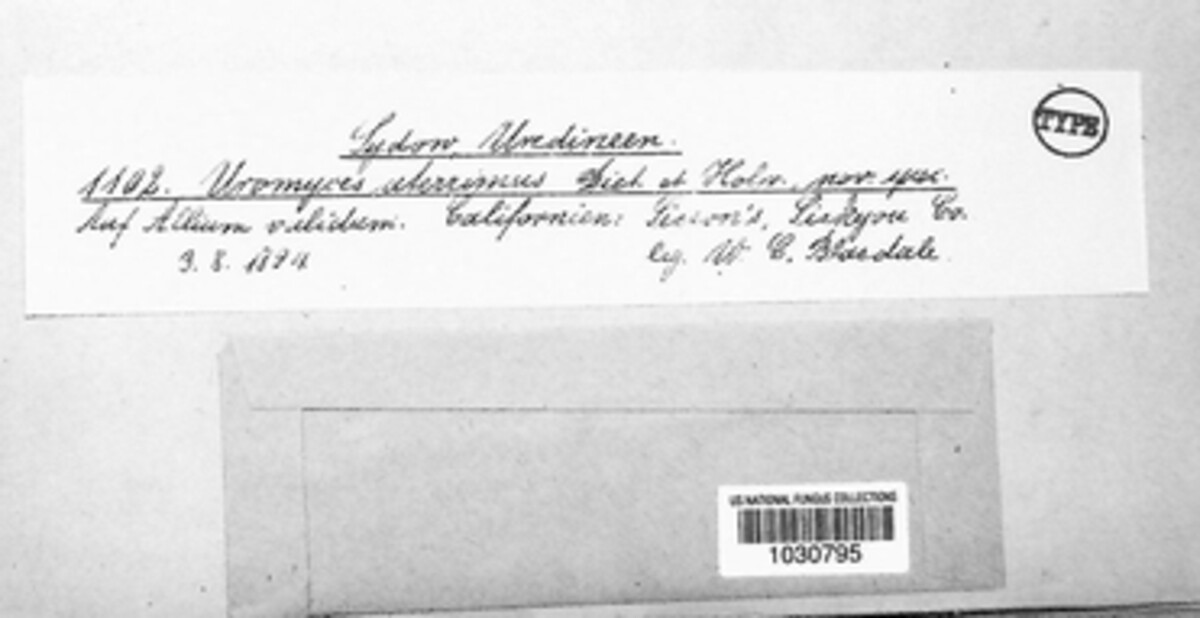 Sydow, Uredineen.
TYPE
1102. Uromyces aterrimus Diet. et Holw. nov. spec.
Auf Allium validum. Californien: Sisson's, Siskyou Co.
9. 8. 1894
leg. W. C. Blasdale.
US NATIONAL FUNGUS COLLECTIONS
1030795